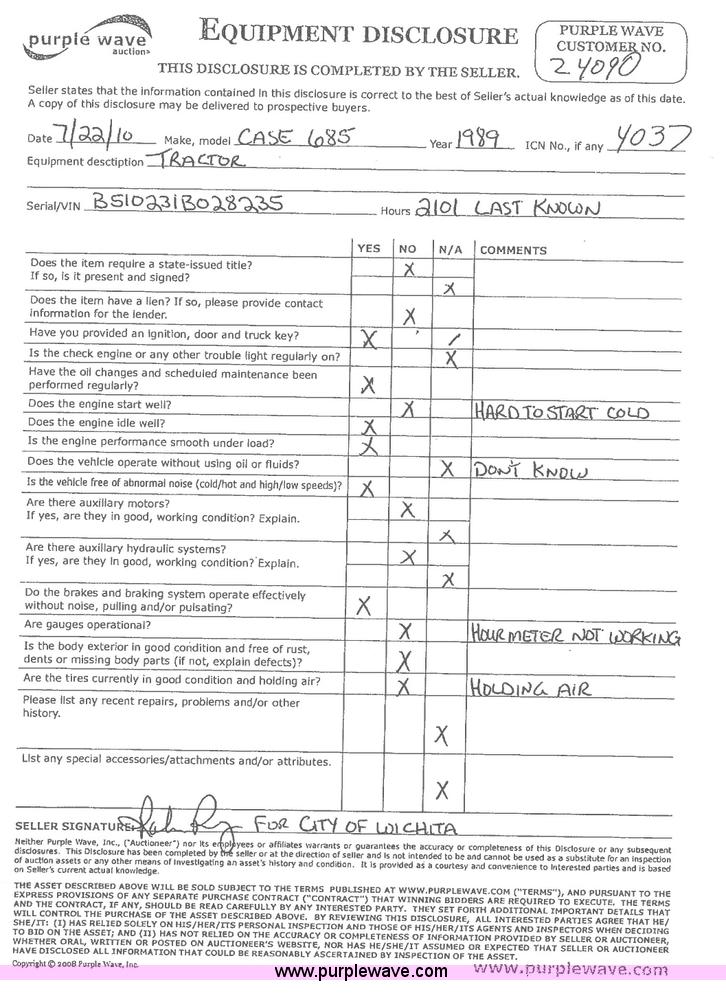 purple wave
auction>
EQUIPMENT DISCLOSURE
PURPLE WAVE
CUSTOMER NO.
24090
THIS DISCLOSURE IS COMPLETED BY THE SELLER.
Seller states that the information contained in this disclosure is correct to the best of Seller's actual knowledge as of this date.
A copy of this disclosure may be delivered to prospective buyers.
Date 7/22/10 Make, model CASE 685 Year 1989 ICN No., if any 4037
Equipment desctiption TRACTOR
Serial/VIN B510231B028235 Hours 2101 LAST KNOWN
YES NO N/A COMMENTS
Does the item require a state-issued title? X
If so, is it present and signed? X
Does the item have a lien? If so, please provide contact
information for the lender. X
Have you provided an ignition, door and truck key? X
Is the check engine or any other trouble light regularly on? X
Have the oil changes and scheduled maintenance been
performed regularly? X
Does the engine start well? X HARD TO START COLD
Does the engine idle well? X
Is the engine performance smooth under load? X
Does the vehicle operate without using oil or fluids? X DON'T KNOW
Is the vehicle free of abnormal noise (cold/hot and high/low speeds)? X
Are there auxiliary motors?
If yes, are they in good, working condition? Explain. X
X
Are there auxiliary hydraulic systems?
If yes, are they in good, working condition? Explain. X
X
Do the brakes and braking system operate effectively
without noise, pulling and/or pulsating? X
Are gauges operational? X HOUR METER NOT WORKING
Is the body exterior in good condition and free of rust,
dents or missing body parts (if not, explain defects)? X
Are the tires currently in good condition and holding air? X HOLDING AIR
Please list any recent repairs, problems and/or other
history. X
List any special accessories/attachments and/or attributes.
X
SELLER SIGNATURE: FOR CITY OF WICHITA
Neither Purple Wave, Inc., ("Auctioneer") nor its employees or affiliates warrants or guarantees the accuracy or completeness of this Disclosure or any subsequent
disclosures. This Disclosure has been completed by the seller or at the direction of seller and is not intended to be and cannot be used as a substitute for an inspection
of auction assets or any other means of investigating an asset's history and condition. It is provided as a courtesy and convenience to interested parties and is based
on Seller's current actual knowledge.
THE ASSET DESCRIBED ABOVE WILL BE SOLD SUBJECT TO THE TERMS PUBLISHED AT WWW.PURPLEWAVE.COM ("TERMS"), AND PURSUANT TO THE
EXPRESS PROVISIONS OF ANY SEPARATE PURCHASE CONTRACT ("CONTRACT") THAT WINNING BIDDERS ARE REQUIRED TO EXECUTE. THE TERMS
AND THE CONTRACT, IF ANY, SHOULD BE READ CAREFULLY BY ANY INTERESTED PARTY. THEY SET FORTH ADDITIONAL IMPORTANT DETAILS THAT
WILL CONTROL THE PURCHASE OF THE ASSET DESCRIBED ABOVE. BY REVIEWING THIS DISCLOSURE, ALL INTERESTED PARTIES AGREE THAT HE/
SHE/IT: (I) HAS RELIED SOLELY ON HIS/HER/ITS PERSONAL INSPECTION AND THOSE OF HIS/HER/ITS AGENTS AND INSPECTORS WHEN DECIDING
TO BID ON THE ASSET; AND (II) HAS NOT RELIED ON THE ACCURACY OR COMPLETENESS OF INFORMATION PROVIDED BY SELLER OR AUCTIONEER,
WHETHER ORAL, WRITTEN OR POSTED ON AUCTIONEER'S WEBSITE, NOR HAS HE/SHE/IT ASSUMED OR EXPECTED THAT SELLER OR AUCTIONEER
HAVE DISCLOSED ALL INFORMATION THAT COULD BE REASONABLY ASCERTAINED BY INSPECTION OF THE ASSET.
Copyright © 2008 Purple Wave, Inc.
www.purplewave.com
www.purplewave.com